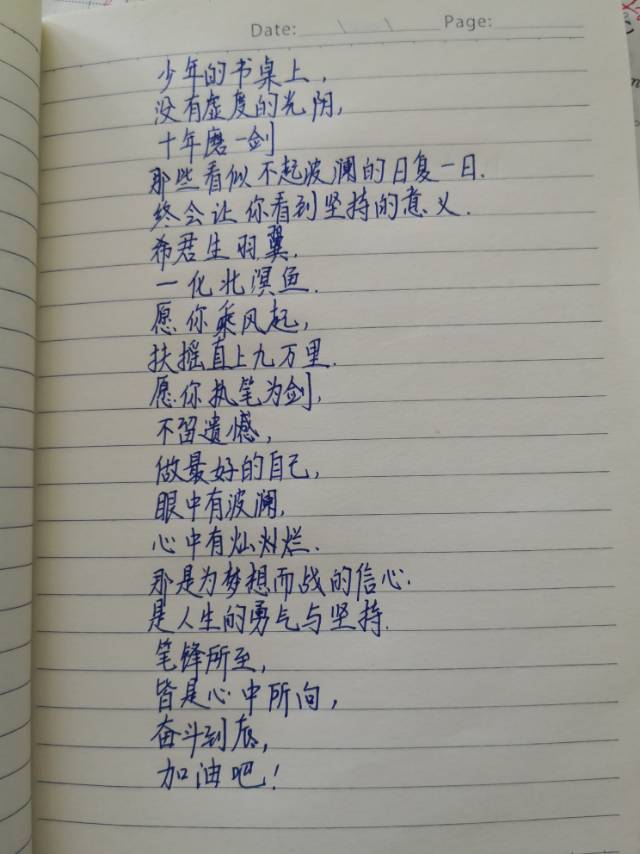 Date: \ \ Page:
少年的书桌上,
没有虚度的光阴,
十年磨一剑
那些看似不起波澜的日复一日.
终会让你看到坚持的意义.
希君生羽翼.
一化北溟鱼.
愿你乘风起,
扶摇直上九万里.
愿你执笔为剑,
不留遗憾,
做最好的自己,
眼中有波澜,
心中有灿烂.
那是为梦想而战的信心.
是人生的勇气与坚持.
笔锋所至,
皆是心中所向,
奋斗到底,
加油吧!